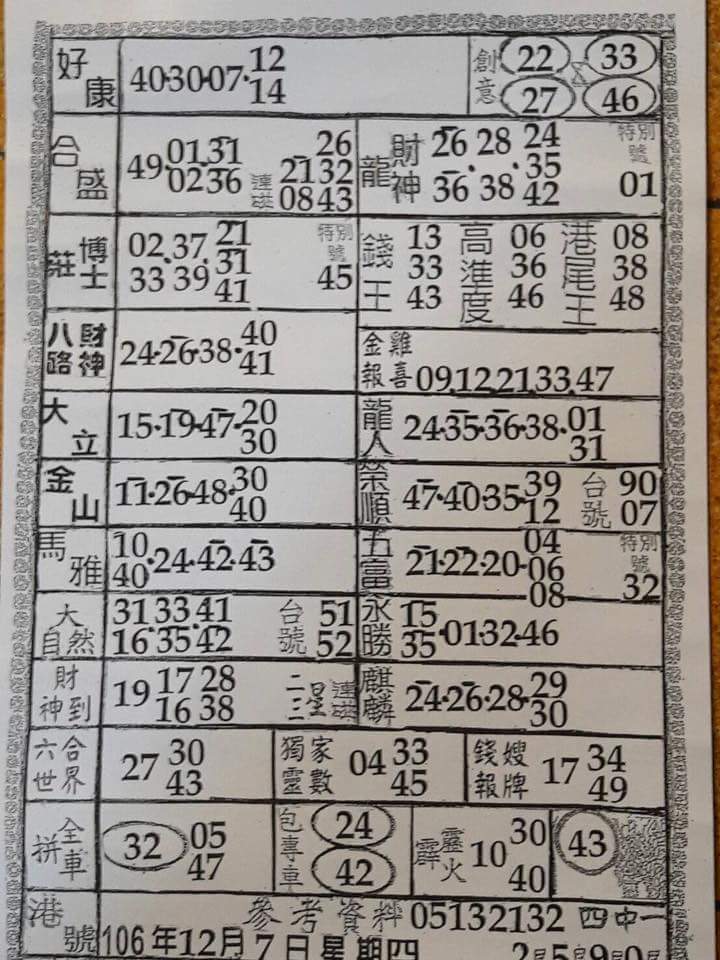 好康 40·30·07·12 14 創意 22 33 27 46
合盛 49·01·31 02·36 連磁 26 21 32 08 43
龍財神 26·28·24 35 36·38·42 特別號 01
莊博士 02·37·21 31 33·39·41 特別號 45
錢王 13 33 43 高準度 06 36 46 港尾王 08 38 48
八路財神 24·26·38·40 41
金雞報喜 09.12.21.33.47
大立 15·19·47·20 30
龍人 24·35·36·38·01 31
金山 11·26·48·30 40
榮順 47·40·35·39 12 台號 90 07
馬雅 10 40·24·42·43
五富 21·22·20·04 06 08 特別號 32
大自然 31·33·41 16·35·42 台號 51 52
永勝 15 35·01·32·46
財神到 19 17 28 16 38 二三星連磁
麒麟 24·26·28·29 30
六合世界 27 30 43
獨家靈數 04 33 45
錢嫂報牌 17 34 49
全拼車 32 05 47
包專車 24 42
霹靂火 10 30 40
43
港號 參考資料 05132132 四中一
106年12月7日星期四